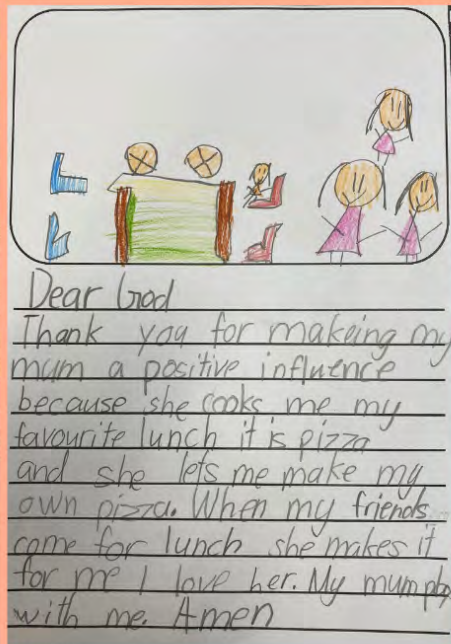 Dear God
Thank you for makeing my
mum a positive influence
because she cooks me my
favourite lunch it is pizza
and she lets me make my
own pizza. When my friends
come for lunch she makes it
for me I love her. My mum play
with me. Amen